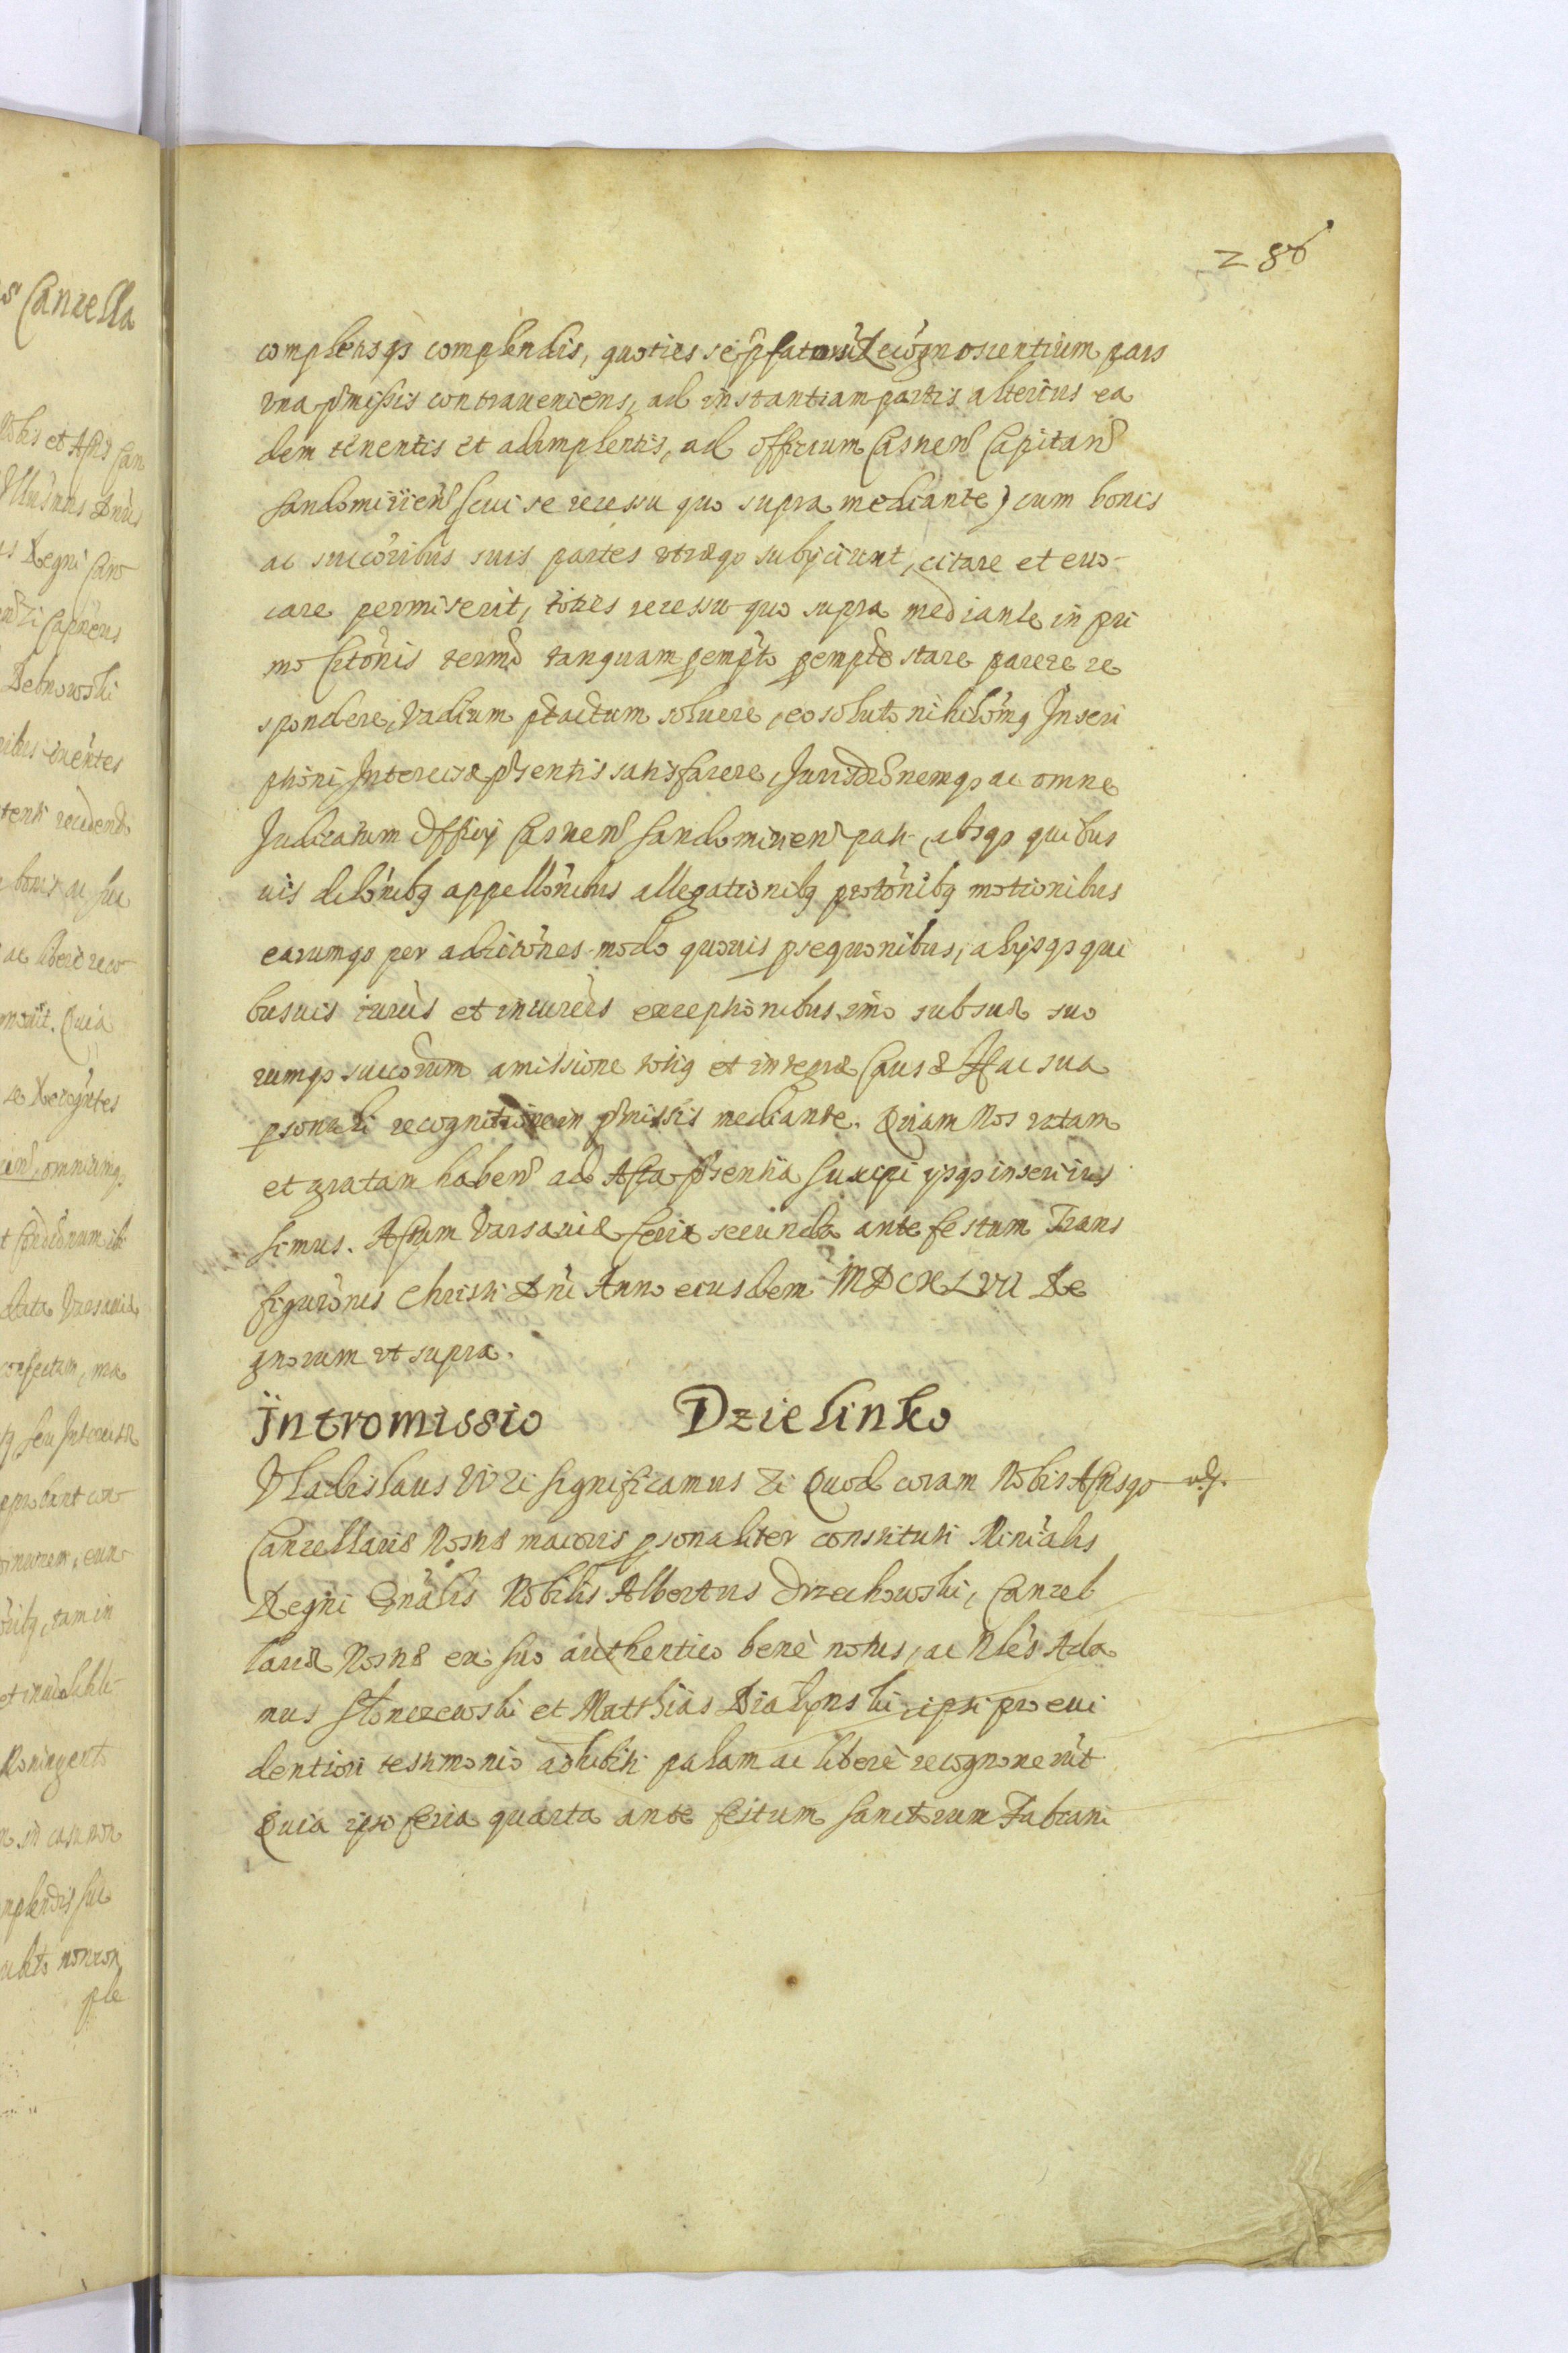 286
complensqs complendis, quoties se pfatorū Recognoscentium pars
vna pmissis contraueniens, ad instantiam partis alterius ea
dem tenentis et adimplentis, ad officium Casnen Capitan
Sandomirien (cui se recessu quo supra mediante) cum bonis
ac succoribus suis partes vtræqs subijciunt, citare et euo-
care permiserit, toties recessu quo supra mediante in pri
mo Citonis termo tanquam pempto pempte stare parere re
spondere, Vadium ptactum soluere, eo soluto nihilomg Inscri
ptioni Intercisæ psentis satisfacere, Jurisdconemqs ac omne
Judicatum Officij Casnen Sandomirien pati, absqs quibus
uis dilonibg appellonibus allegationibg protonibg motionibus
earumqs per adicitones modo quouis psequonibus, alijsqs qui
busuis iuris et incuriis exceptionibus, imo sub suæ suo
rumqs succorum amissione totig et integræ Causæ Hac sua
psonali recognitione in pmissis mediante. Quam Nos ratam
et gratam haben ad Acta psentia suscipi ipsqs inseri ius
simus. Actum Varsauiæ feria secunda ante festum Trans
figuronis Christi Dni Anno eiusdem MDCXLVII Re
gnorum vt supra.
Intromissio Dzielinko
Vladislaus IV Zi Significamus Zi Quod coram Nobis Actisqs
Cancellariæ Nosræ maioris psonaliter constituti Minialis
Regni Gnalis Nobilis Albertus Orzechowski, Cancel
lariæ Nosræ ex suo authentico benè notus, ac Nles Ada
mus Słonczewski et Matthias Działynski ipsi pro eui
dentiori testimonio adhibiti palam ac liberè recognouerūt
Quia ipso feria quarta ante festum Sanctorum Fabiani